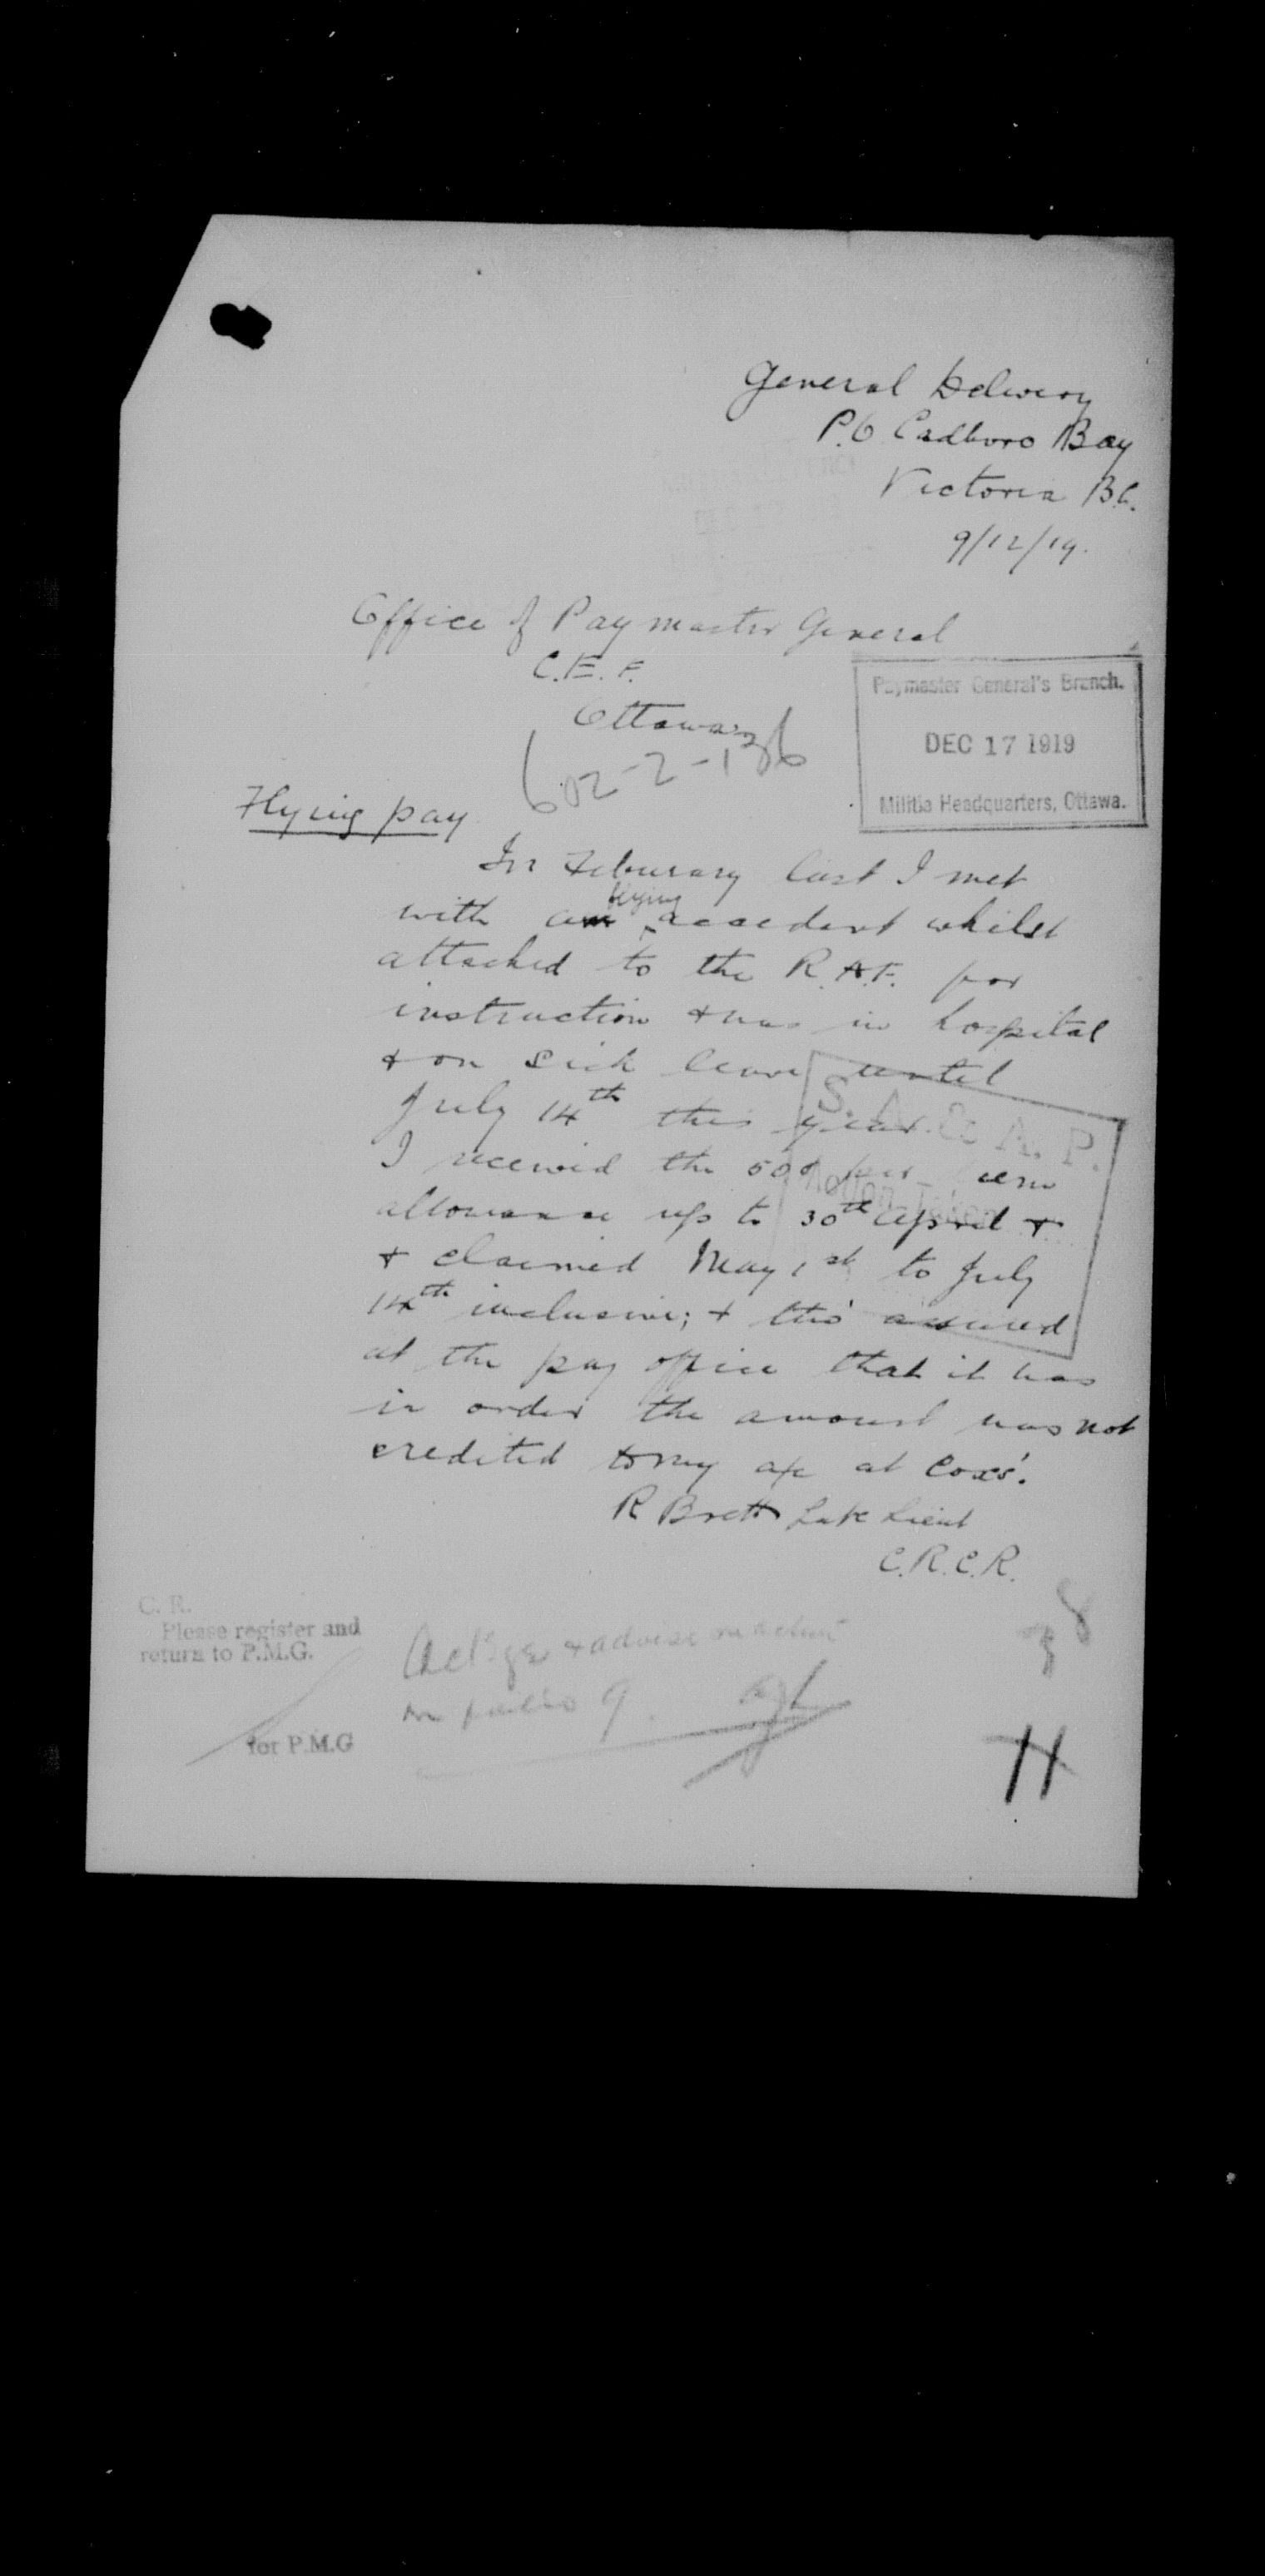 General Delivery
P.O Cadboro Bay
Victoria B.C.
9/12/19.
Office of Paymaster General
C.E.F.
Ottawa
Paymaster General's Branch.
DEC 17 1919
Militia Headquarters, Ottawa.
602-2-136
Flying pay
In Feburary last I met
with a flying accedent whilst
attached to the R.A.F. for
instruction & was in hospital
& on sick leave until
July 14th this year.
S. A. & A. P.
I received the 50¢ per
allowance up to 30th April &
& claimed May 1st to July
14th inclusive; & tho' assured
at the pay office that it was
in order the amount was not
credited to my a/c at Coxs'.
R Brett Late Lieut
C.R.C.R.
C. R.
Please register and
return to P.M.G.
for P.M.G
& advise
9.
8
H